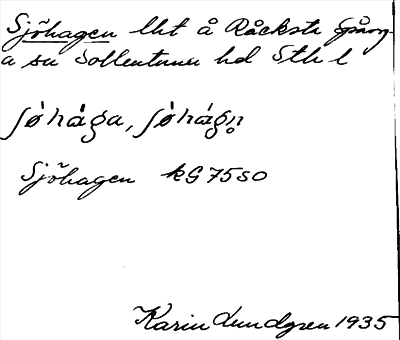 Sjöhagen lht å Råcksta Spång-
a sn Sollentuna hd Sthl l
ʃö̀hága, ʃö̀hágn̥
Sjöhagen kG 75 SO
Karin Lundgren 1935